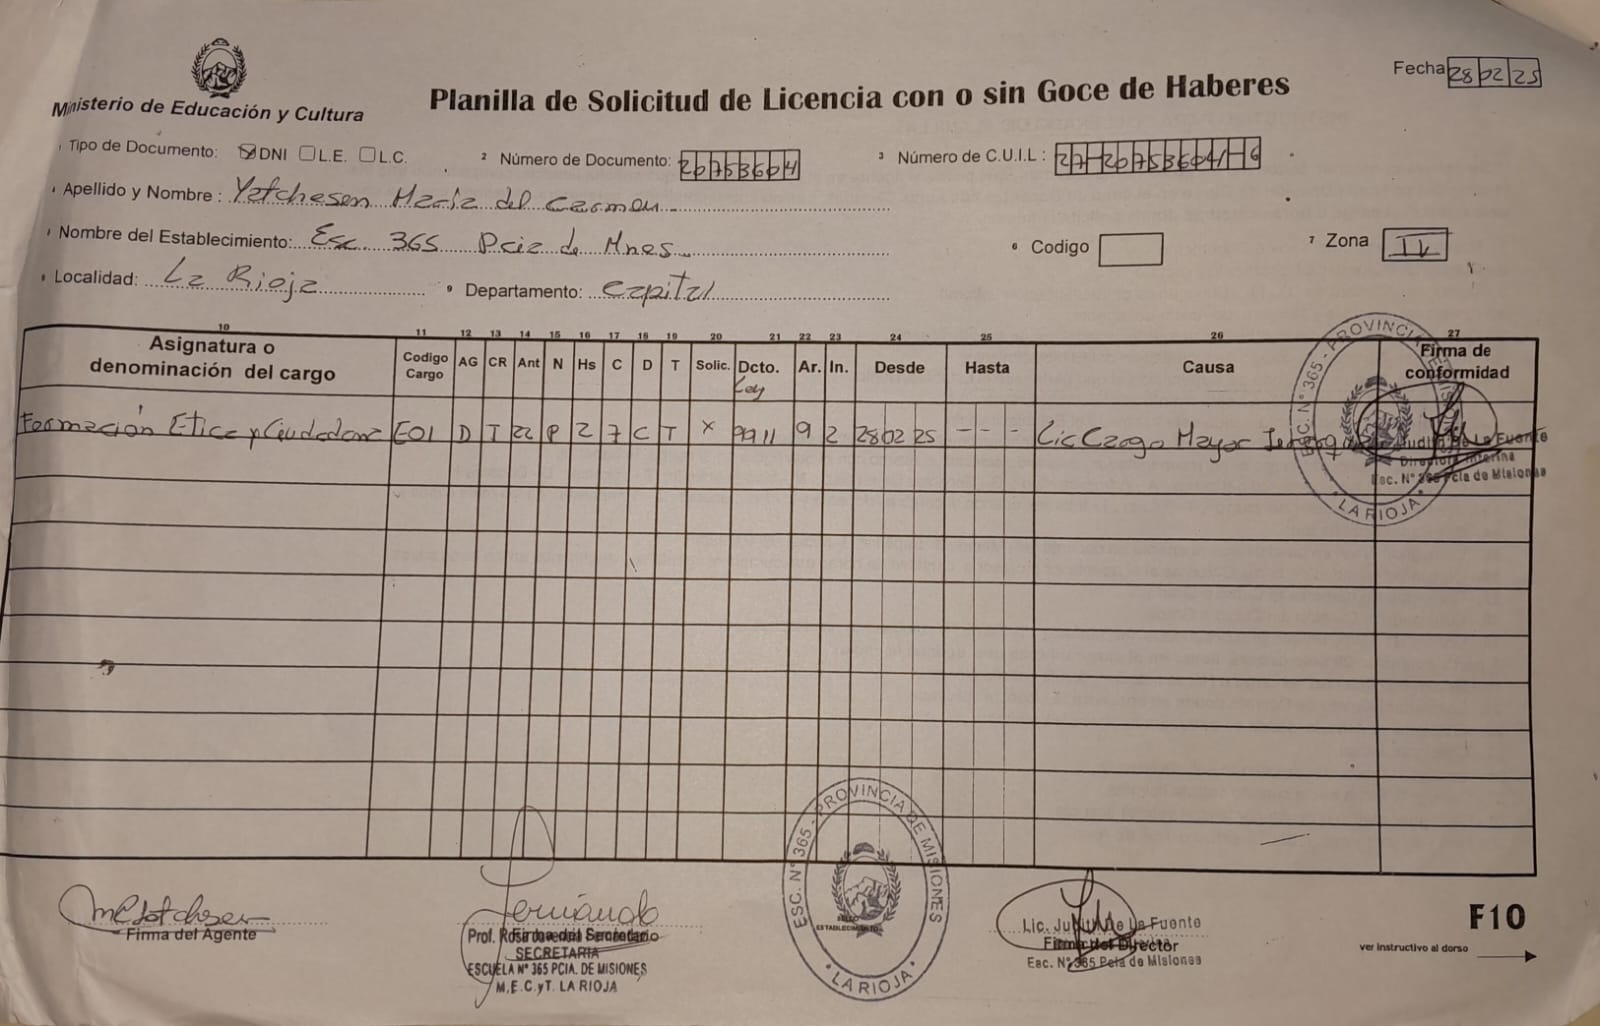 Ministerio de Educación y Cultura
Planilla de Solicitud de Licencia con o sin Goce de Haberes
Fecha 28 02 25
1 Tipo de Documento: DNI L.E. L.C.
2 Número de Documento: 20753604
3 Número de C.U.I.L : 27-20753604/-6
Apellido y Nombre : Yatchesen María del Carmen
Nombre del Establecimiento: Esc. 365 Pcia de Mnes
6 Codigo
7 Zona IV
Localidad: La Rioja
9 Departamento: Capital
10 11 12 13 14 15 16 17 18 19 20 21 22 23 24 25 26 27
Asignatura o denominación del cargo Codigo Cargo AG CR Ant N Hs C D T Solic. Dcto. Ley Ar. In. Desde Hasta Causa Firma de conformidad
Formación Etica y Ciudadana E01 D T 22 P 2 7 C T X 9911 9 2 28 02 25 - - - Lic Cargo Mayor
ESC. N° 365 - PROVINCIA
LA RIOJA
Judith De La Fuente
Directora Interina
Esc. N° 365 Pcia de Misiones
ESC. N° 365 - PROVINCIA DE MISIONES
SELLO
ESTABLECIMIENTO
LA RIOJA
Firma del Agente
Fernándo
Prof.
SECRETARIA
ESCUELA N° 365 PCIA. DE MISIONES
M.E.C.yT. LA RIOJA
Lic. Judith De La Fuente
Firma del Director
Esc. N° 365 Pcia de Misiones
F10
ver instructivo al dorso